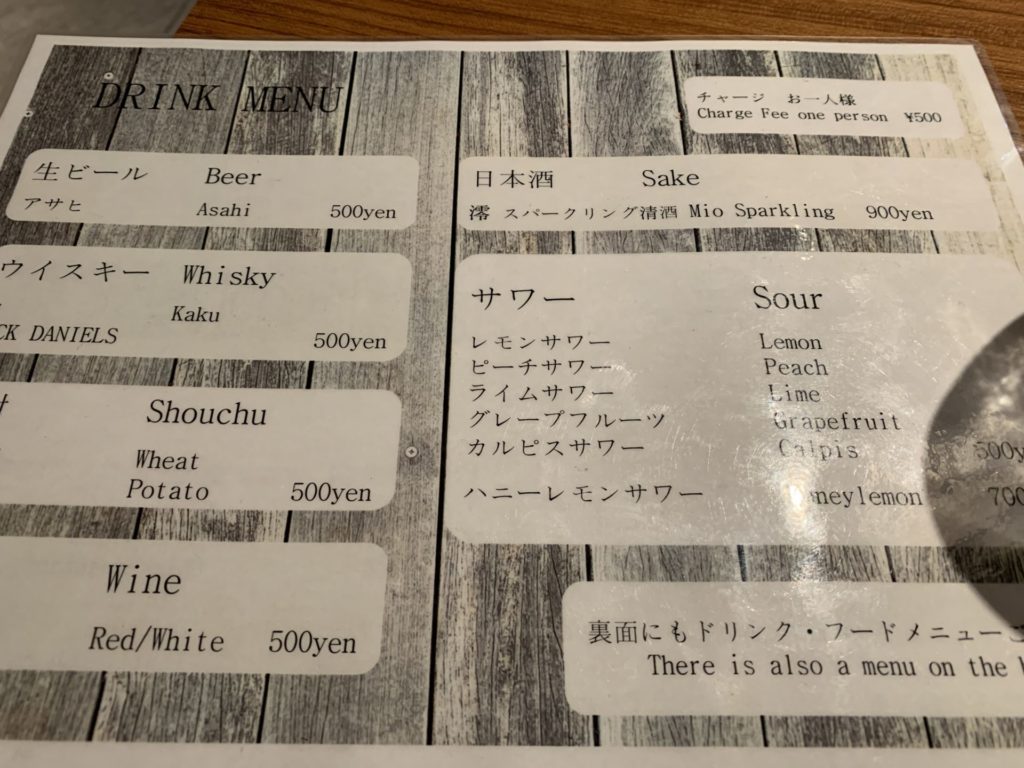 DRINK MENU
チャージ お一人様
Charge Fee one person ¥500
生ビール Beer
アサヒ Asahi 500yen
ウイスキー Whisky
Kaku
CK DANIELS 500yen
Shouchu
Wheat
Potato 500yen
Wine
Red/White 500yen
日本酒 Sake
澪 スパークリング清酒 Mio Sparkling 900yen
サワー Sour
レモンサワー Lemon
ピーチサワー Peach
ライムサワー Lime
グレープフルーツ Grapefruit
カルピスサワー Calpis 500y
ハニーレモンサワー neylemon 700
裏面にもドリンク・フードメニュー
There is also a menu on the